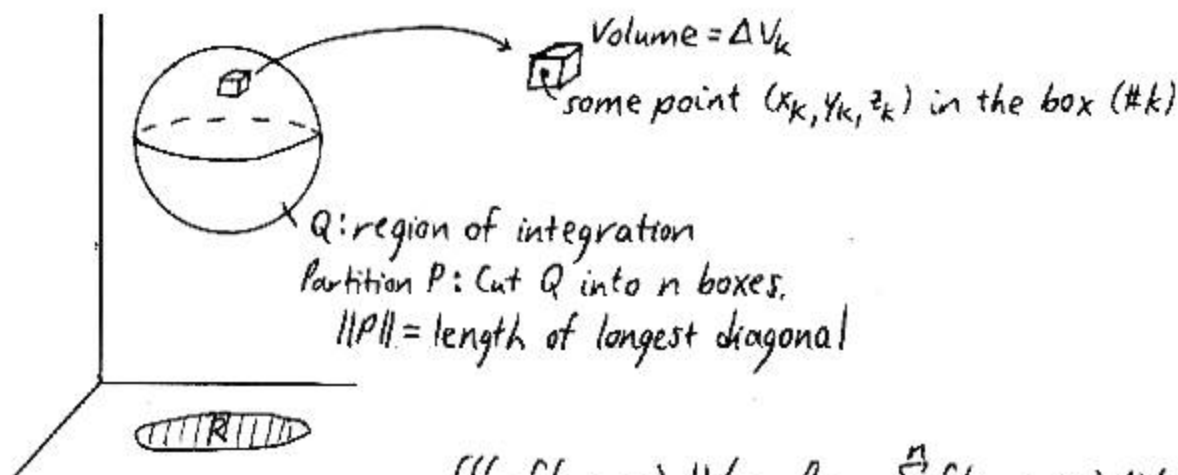 Volume = ΔVₖ
some point (xₖ, yₖ, zₖ) in the box (#k)
Q: region of integration
Partition P: Cut Q into n boxes.
||P|| = length of longest diagonal
R
n